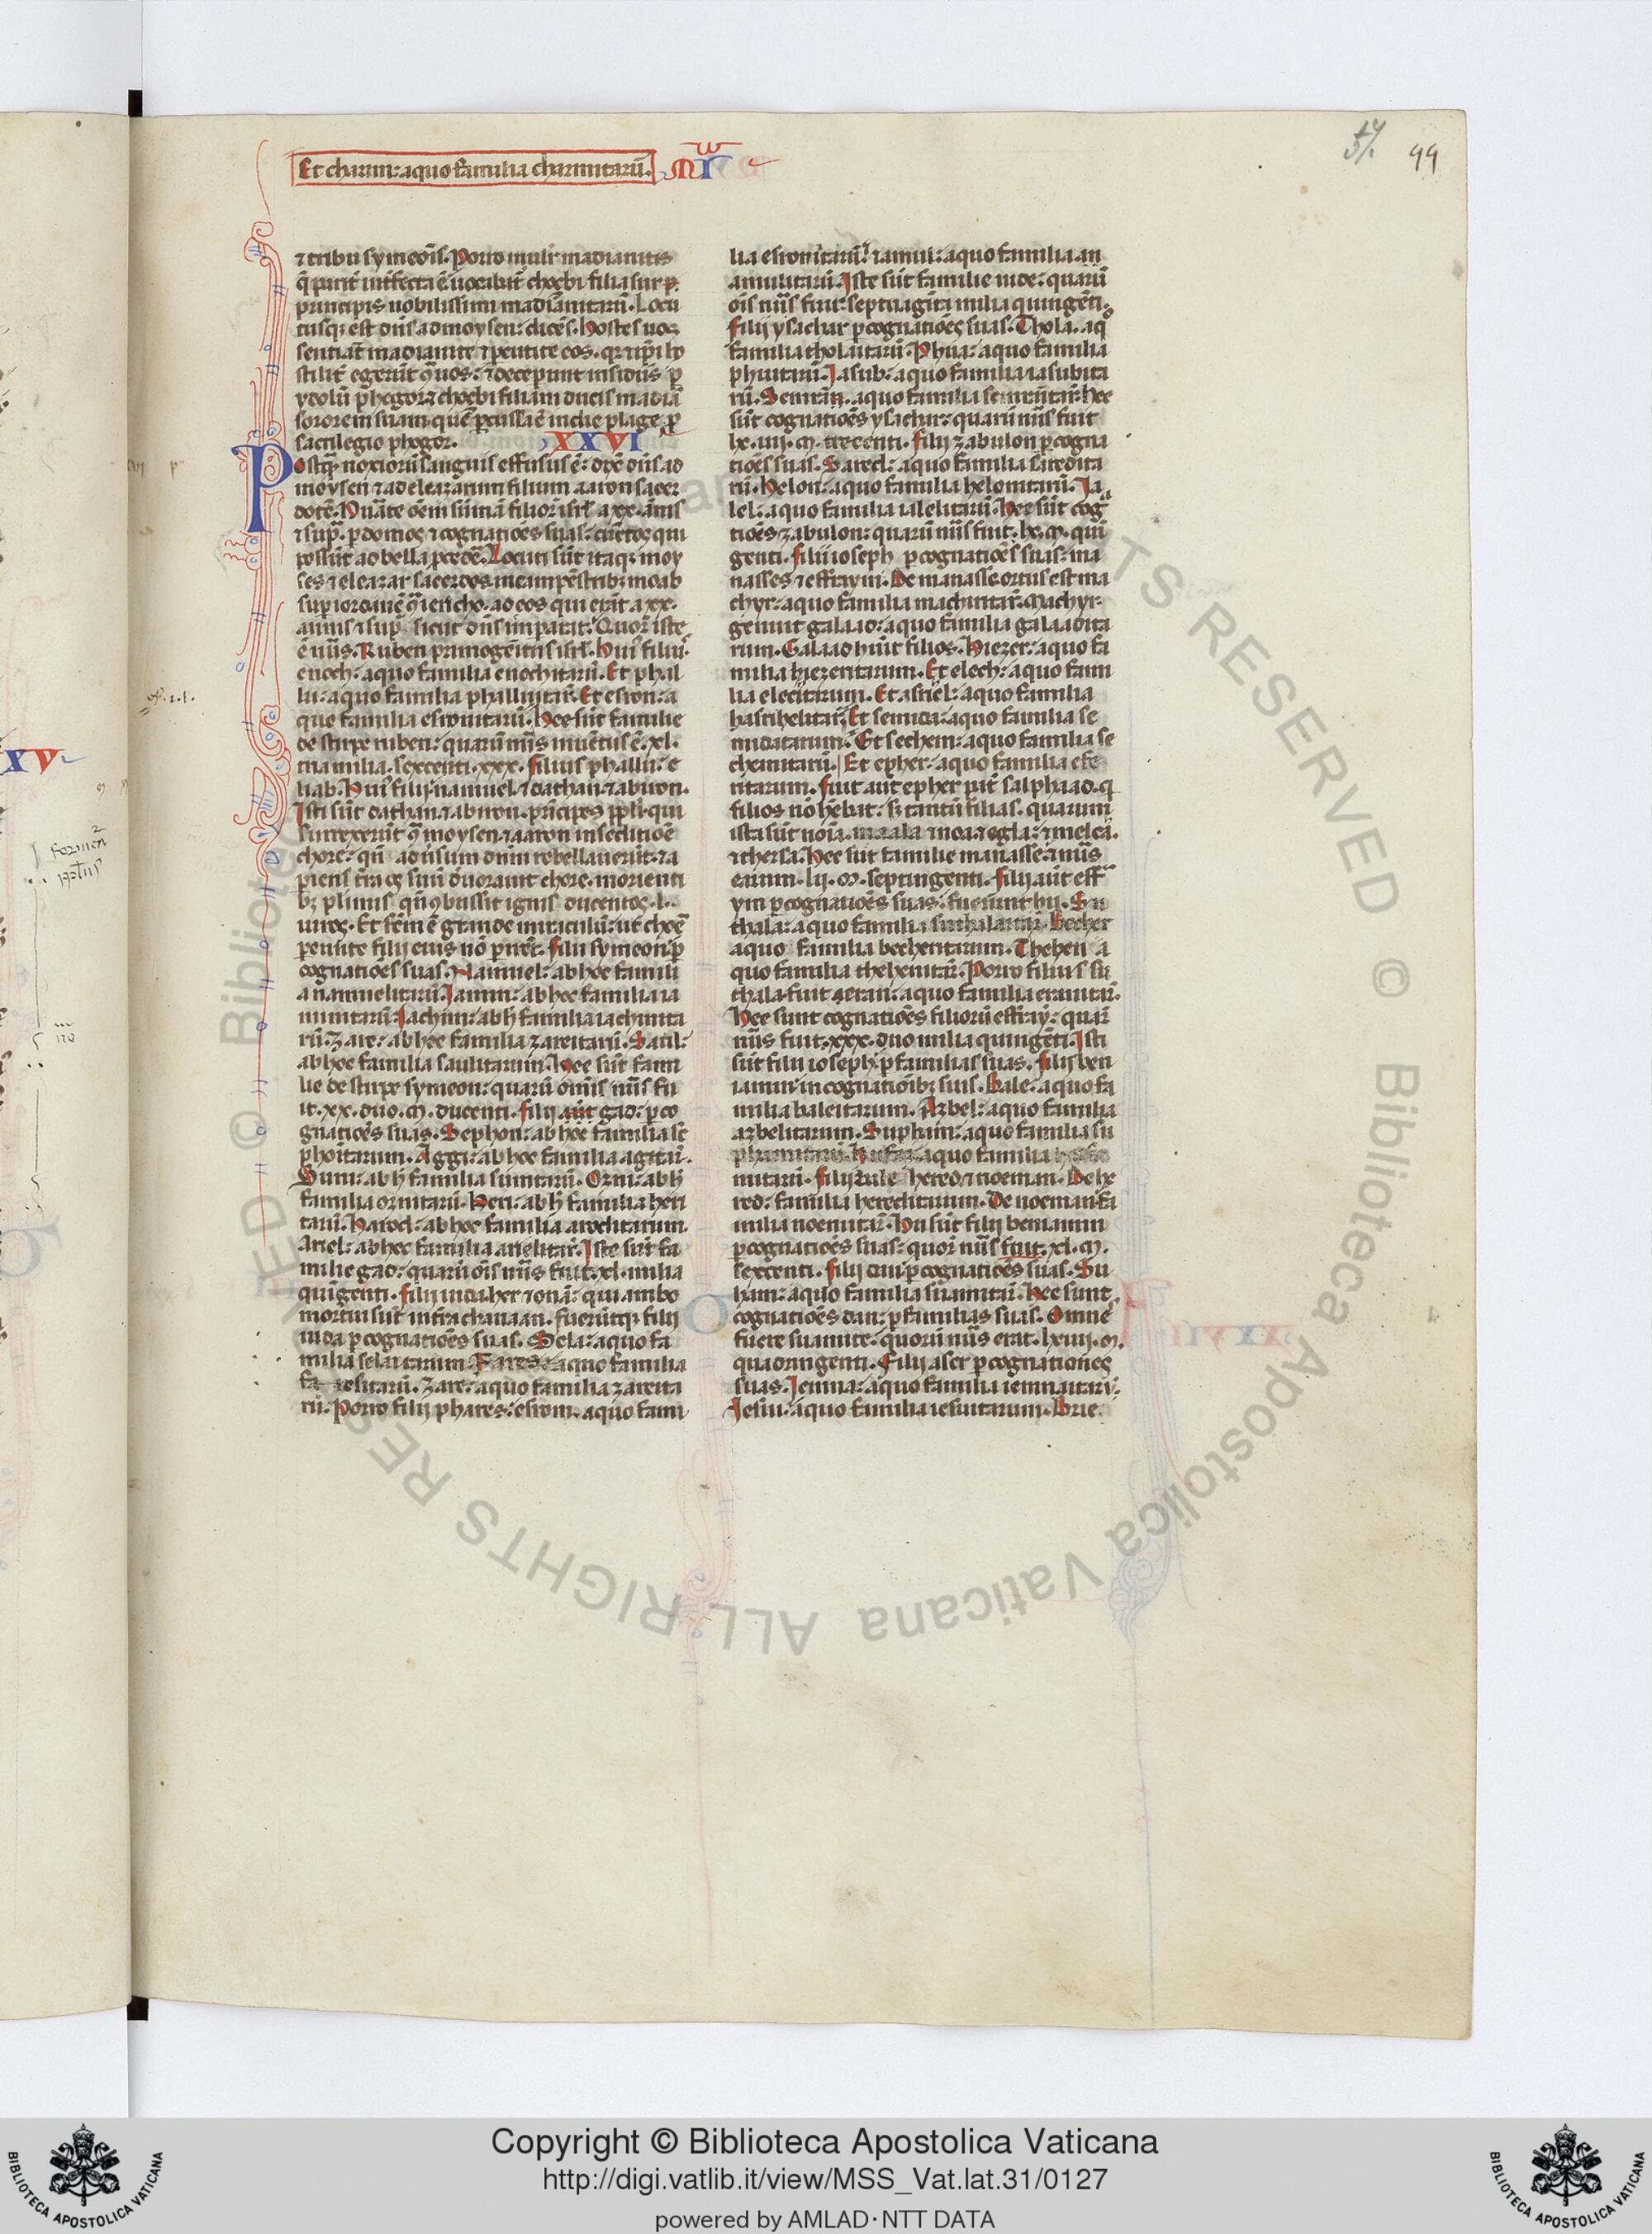 Et charmi: a quo familia charmitarū.
MI
57.
99
⁊ tribu symeōis. Porro mulier madianitis
principis nobilissimi madianitarū. Locu
tusq; est dn̄s ad moysen: dicēs. Hostes uos
sentiāt madianite ⁊ percutite eos. qr ⁊ ip̄i ho
stilit' egerūt ꝯ uos: ⁊ decepunt insidiis ꝑ
ydolū phegor ⁊ chozbi filiam ducis madiā
sororem suam que ꝑcussa ē in die plage ꝓ
sacrilegio phogor.
XXVI
Postq̄ noxiorū sanguis effusus ē: dix̄ dn̄s ad
moysen ⁊ ad eleazarum filium aaron sacer
dotē. Nūate oēm sūmā filior isrl' a xx. annis
⁊ sup̄. ꝑ domos ⁊ cognatiōes suas: cūctos qui
possūt ad bella ꝓcedē. Locuti sūt itaq; moy
ses ⁊ eleazar sacerdos in campestrib; moab
sup iordanē ꝯ iericho. ad eos qui erāt a xx.
annis ⁊ sup̄ sicut dn̄s imparat: Quor iste
ē nūs. Ruben primogēitus isrl'. Hui' filii:
enoch: a quo familia enochitarū. Et phal
lu: a quo familia phalluitar. Et esron: a
quo familia esronitarū. Hee sūt familie
de stirpe ruben: quarū nūs inuētus ē. xl.
tria milia. sexcenti. xxx. Filius phallu: e
liab. Hui' filii: namuel. ⁊ dathan. ⁊ abiron.
Isti sūt dathan ⁊ abiron. prīcipes ppli. qui
surrexerūt ꝯ moysen ⁊ aaron in seditiōe
chore: qn̄ aduersum dnm rebellauerūt. ⁊ a
piens tr̄a os suū deuorauit chore. morienti
b; plimis qn̄ ꝯbussit ignis ducentos. l.
uiros. Et fc̄m ē grande miraculū: ut chore
pereunte filii eius nō perirēt. Filii symeon ꝑ
cognatiōes suas. Namuel: ab hoc famili
a namuelitarū. Iamin: ab hoc familia ia
minitarū. Iachim: ab h familia iachinita
rū. Zare: ab hoc familia zareitarū. Saul:
ab hoc familia saulitarum. Hee sūt fami
lie de stirpe symeon: quarū omīs nūs fu
it. xx. duo. M. ducenti. Filii aūt gad: ꝑ co
gnatiōes suas. Sephon: ab hoc familia se
phonitarum. Aggi: ab hoc familia agitar.
Suni: ab h familia sunitarū. Ozni: ab h
familia oznitarū. Heri: ab h familia heri
tarū. Harod: ab hoc familia aroditarum.
Ariel: ab hoc familia arielitar. Iste sūt fa
milie gad: quarū oīs nūs fuit. xl. milia
quigenti. Filii iuda her ⁊ onā: qui ambo
mortui sūt in tr̄a chanaan. fuerūtq; filii
iuda ꝑ cognatiōes suas. Sela: a quo fa
milia selaitarum. Fares: a quo familia
fa resitarū. Zare: a quo familia zareita
rū. Porro filii phares: esrom. a quo fami
lia esronitarū. ⁊ amul: a quo familia am
amulitarū. Iste sūt familie iude: quarū
oīs nūs fuit: septuagīta milia quingēti.
Filii ysachar ꝑ cognatiōes suas. Thola. a q̊
familia tholaitarū. Phua: a quo familia
phuitarū. Iasub: a quo familia iasubita
rū. Semrān. a quo familia semrāitar: hee
sūt cognatiōes ysachar: quarū nūs fuit
lx. iiii. M. trecenti. Filii zabulon ꝑ cogna
tiōes suas. Sared: a quo familia saredita
rū. Helon: a quo familia helonitarū. Ia
lel: a quo familia ialelitarū. Hee sūt cog
tiōes zabulon: quarū nūs fuit. lx. M. qui
genti. Filii ioseph ꝑ cognatiōes suas: ma
nasses ⁊ effraym. De manasse ortus est ma
chyr: a quo familia machiritar. Machyr
genuit galaad: a quo familia galaadita
rum. Galaad huit filios. Hiezer: a quo fa
milia hiezeritarum. Et elech: a quo fami
lia elecitarum. Et asriel: a quo familia
hasrihelitar. Et semida: a quo familia se
midatarum. Et sechem: a quo familia se
chemitarū. Et epher: a quo familia efe
ritarum. Fuit aūt epher pat' salphaad. q
filios nō hēbat: s; tantū filias. quarum
ista sūt noīa. maala ⁊ noa ⁊ egla: ⁊ melca.
⁊ thersa. Hee sūt familie manasse: ⁊ nūs
earum. lii. M. septingenti. Filii aūt eff
ym ꝑ cognatiōes suas. fuerunt hii. Su
thala: a quo familia suthalaitar. Becher
a quo familia becheritarum. Thehen a
quo familia thehenitar. Porro filius su
thala fuit heran: a quo familia eranitar.
Hee sunt cognatiōes filiorū effray: quar
nūs fuit. xxx. duo milia quingēti. Isti
sūt filii ioseph. ꝑ familias suas. Filii ben
iamin in cognatiōib; suis. Bale: a quo fa
milia baleitarum. Azbel: a quo familia
azbelitarum. Supham: a quo familia su
phamitarū. Hufam: a quo familia
mitarū. Filii bale hered ⁊ noeman. De he
red: familia hereditarum. De noeman: fa
milia noemitar. Hii sūt filii beniamin
ꝑ cognatiōes suas: quor nūs fuit. xl. M.
sexcenti. Filii dan ꝑ cognatiōes suas. Su
ham: a quo familia suamitarū. Hee sunt
cognatiōes dan: ꝑ familias suas. Omnē
fuere suamite: quorū nūs erat. lxiiii. M.
quadringenti. Filii aser ꝑ cognationes
suas. Iemna: a quo familia iemnaitarū.
Iesui: a quo familia iesuitarum. Brie
XV
Copyright © Biblioteca Apostolica Vaticana
http://digi.vatlib.it/view/MSS_Vat.lat.31/0127
powered by AMLAD·NTT DATA
BIBLIOTECA APOSTOLICA VATICANA
BIBLIOTECA APOSTOLICA VATICANA
© Biblioteca Apostolica Vaticana ALL RIGHTS RESERVED